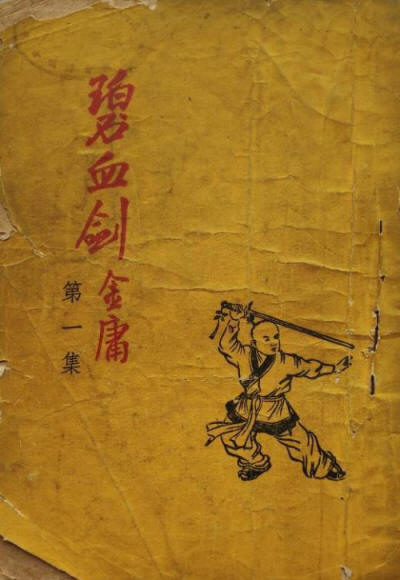 碧血劍
金庸
第一集